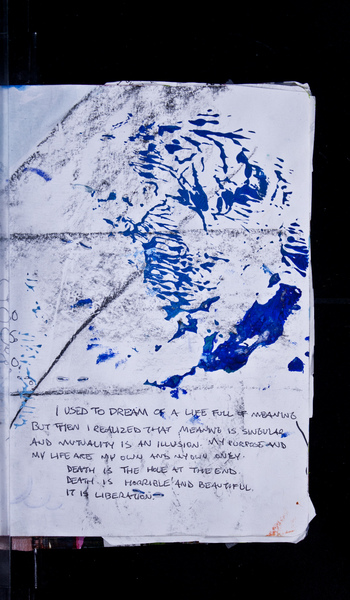 I USED TO DREAM OF A LIFE FULL OF MEANING
BUT THEN I REALIZED THAT MEANING IS SINGULAR
AND MUTUALITY IS AN ILLUSION. MY PURPOSE AND
MY LIFE ARE MY OWN AND MY OWN ONLY.
DEATH IS THE HOLE AT THE END.
DEATH IS HORRIBLE AND BEAUTIFUL.
IT IS LIBERATION.